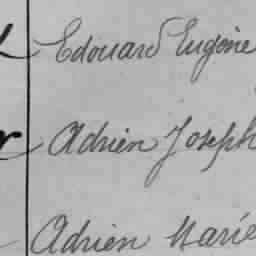 Edouard Eugène
r Adrien Joseph
Adrien Marie